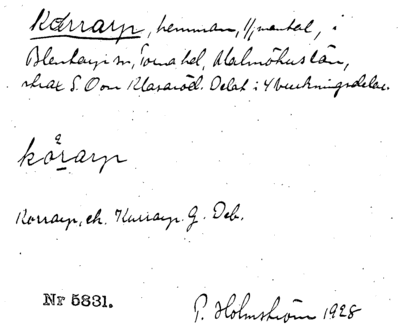 Korrarp, hemman, 1/1 mantal, i
Blentarps sn, Torna hd, Malmöhus län,
strax S. Om Klasaröd. Delat i 4 brukningsdelar.
kårarp
Korrarp, ek. Kurrarp. G. Deb.
Nr 5831.
P. Holmström 1928